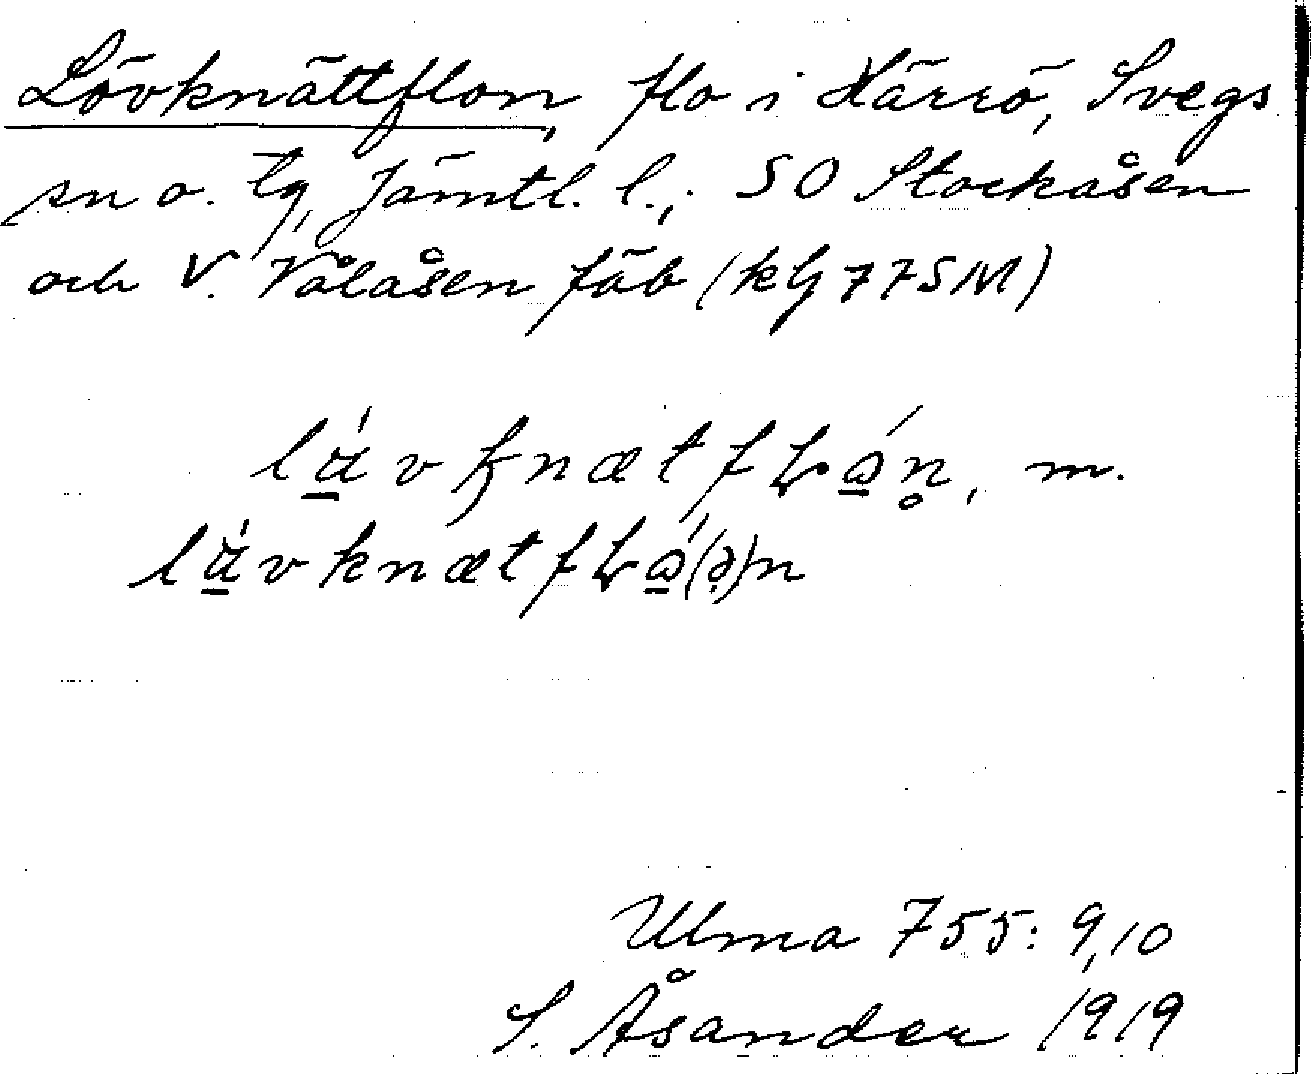 Lövknättflon, flo i Härrö, Svegs
sn o. tg, Jämtl. l.; SO Stockåsen
och V. Vålåsen fäb (kg 77SM)
m.
Ulma 755: 9,10
S. Åsander 1919